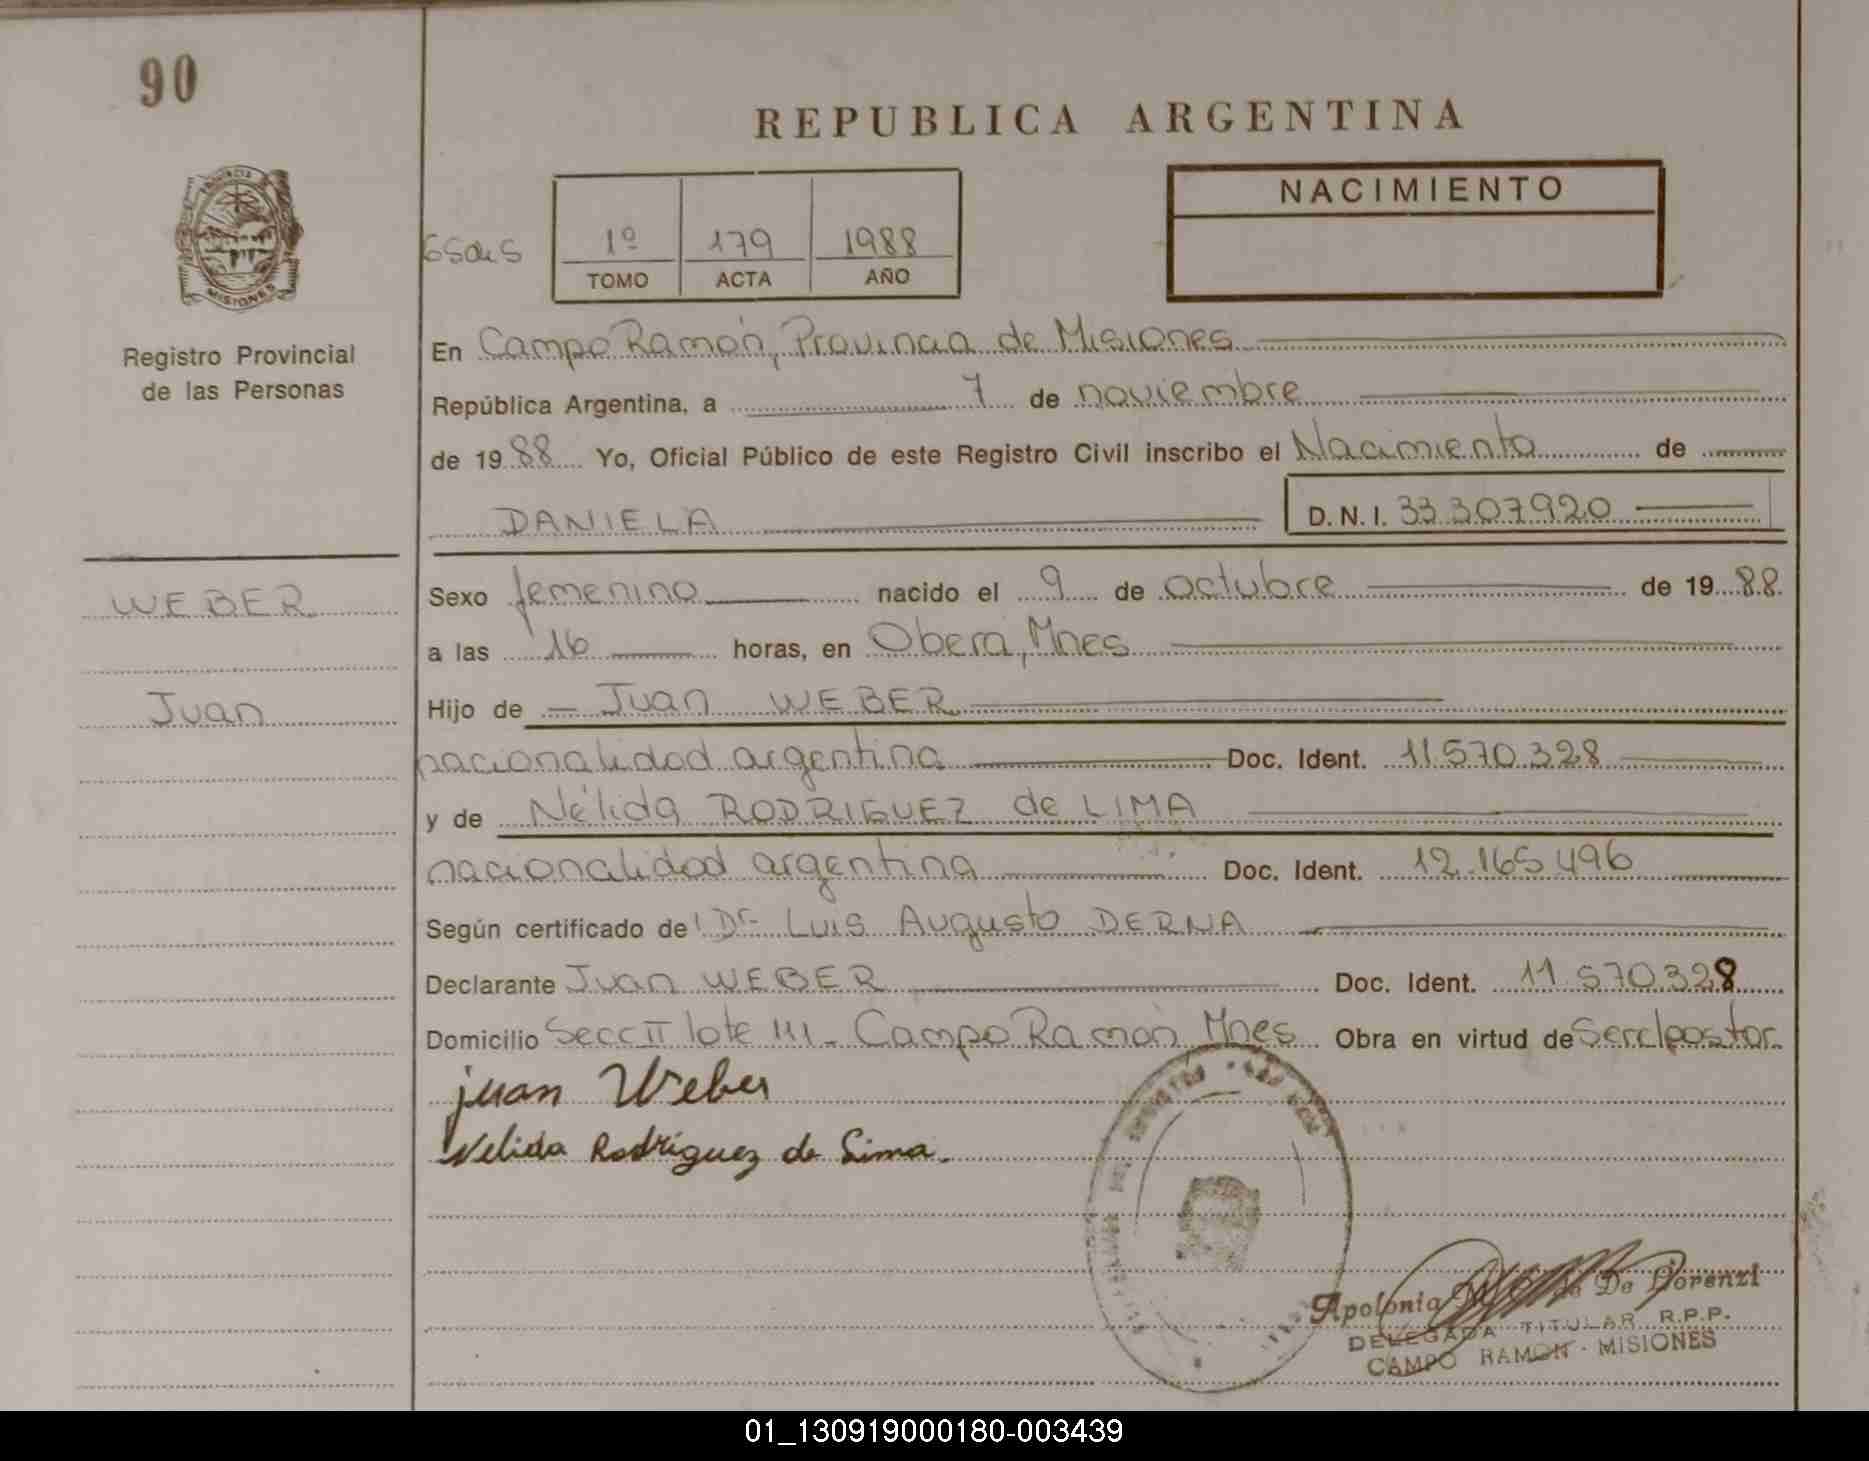 90
REPUBLICA ARGENTINA
PROVINCIA
MISIONES
NACIMIENTO
1º 179 1988
TOMO ACTA AÑO
Registro Provincial
de las Personas
En Campo Ramón, Provincia de Misiones
República Argentina, a 7 de noviembre
de 1988 Yo, Oficial Público de este Registro Civil inscribo el Nacimiento de
DANIELA D. N. I. 33.307920
WEBER
Juan
Sexo femenino nacido el 9 de octubre de 1988.
a las 16 horas, en Oberá, Mnes
Hijo de Juan WEBER
nacionalidad argentina Doc. Ident. 11.570.328
y de Nélida RODRIGUEZ de LIMA
nacionalidad argentina Doc. Ident. 12.165.496
Según certificado de Dr. Luis Augusto DERNA
Declarante Juan WEBER Doc. Ident. 11.570.328
Domicilio Secc II lote 111 - Campo Ramón Mnes Obra en virtud de
juan Weber
Nelida Rodríguez de Lima.
Apolonia De Lorenzi
DELEGADA TITULAR R.P.P.
CAMPO RAMON - MISIONES
01_130919000180-003439